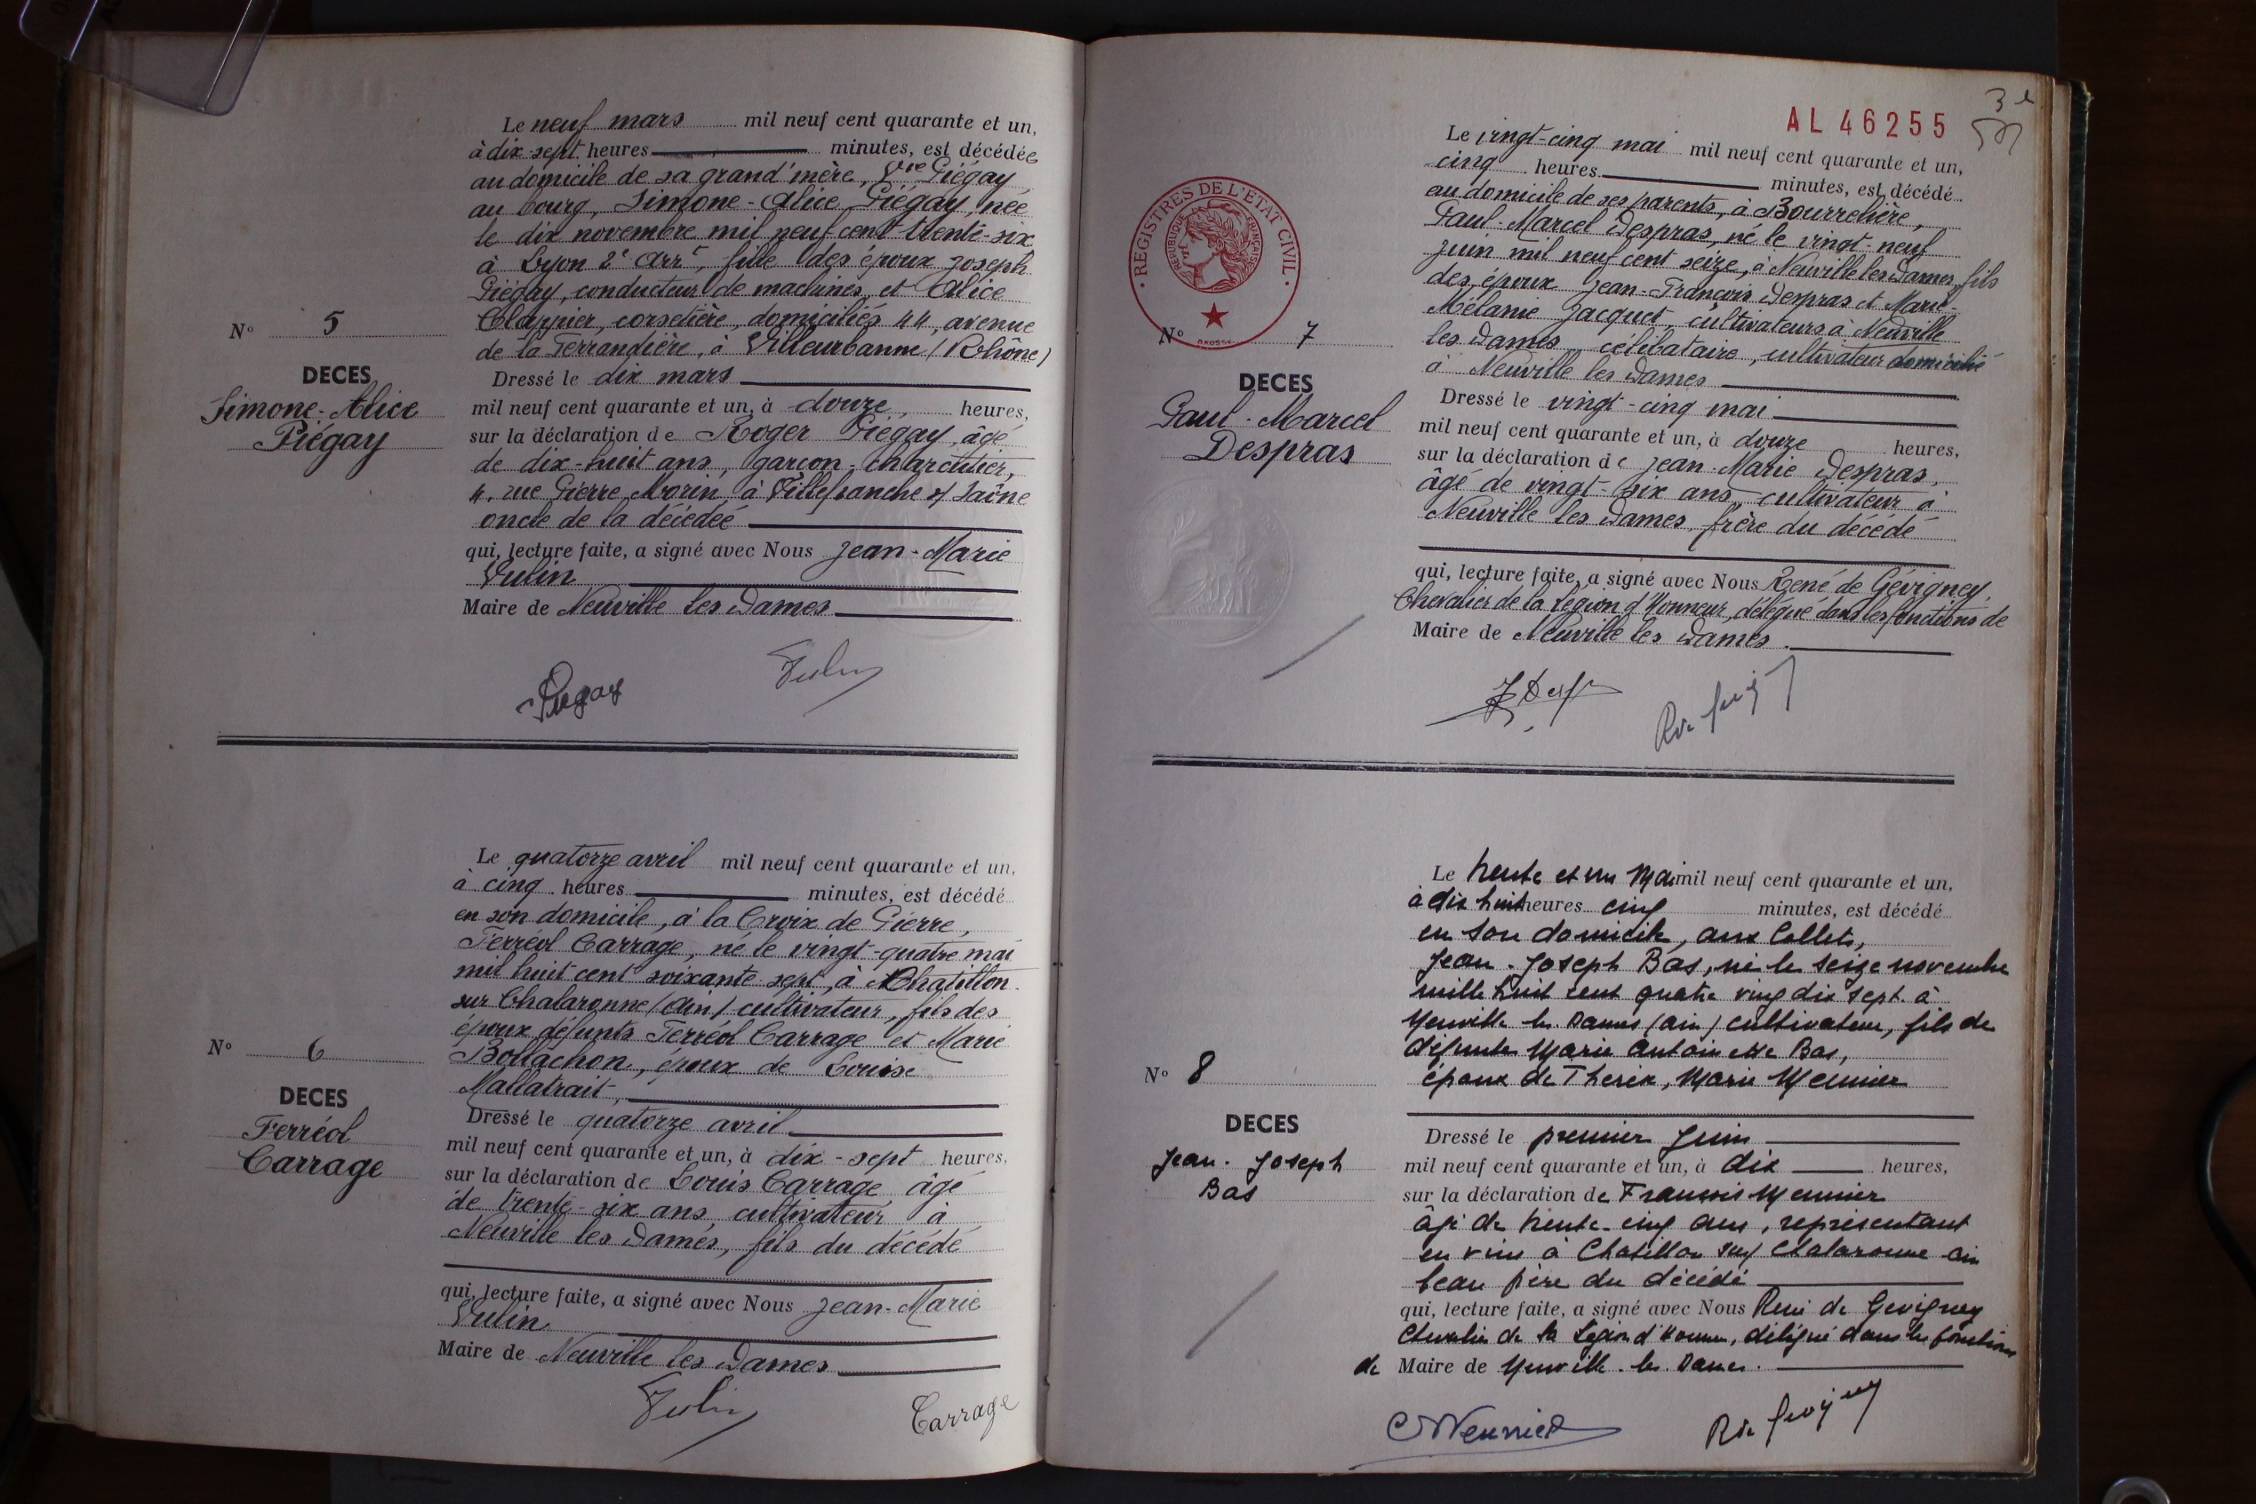 Le neuf mars mil neuf cent quarante et un,
à dix-sept heures minutes, est décédée
au domicile de sa grand'mère, Vve Piégay
au bourg, Simone-Alice Piégay, née
le dix novembre mil neuf cent trente-six
à Lyon 2e Arrt, fille des époux Joseph
Piégay, conducteur de machines, et Alice
Clappier, corsetière, domiciliés 44, avenue
de la Ferrandière, à Villeurbanne (Rhône)
N° 5
DECES
Simone-Alice
Piégay
Dressé le dix mars
mil neuf cent quarante et un, à douze, heures,
sur la déclaration de Roger Piégay, âgé
de dix-huit ans, garçon-charcutier,
4, rue Pierre Morin, à Villefranche s/ Saône
oncle de la décédée
qui, lecture faite, a signé avec Nous Jean-Marie
Vulin
Maire de Neuville les Dames
Piegay Vulin
Le quatorze avril mil neuf cent quarante et un,
à cinq heures minutes, est décédé
en son domicile, à la Croix de Pierre,
Ferréol Carrage, né le vingt-quatre mai
mil huit cent soixante-sept, à Chatillon-
sur Chalaronne (Ain) cultivateur, fils des
époux défunts Ferréol Carrage et Marie
Bollachon, époux de Louise
Mallatrait,
N° 6
DECES
Ferréol
Carrage
Dressé le quatorze avril
mil neuf cent quarante et un, à dix-sept heures,
sur la déclaration de Louis Carrage, âgé
de trente-six ans, cultivateur à
Neuville les Dames, fils du décédé
qui, lecture faite, a signé avec Nous Jean-Marie
Vulin
Maire de Neuville les Dames
Vulin Carrage
3e
AL 46255
Le vingt-cinq mai mil neuf cent quarante et un,
cinq heures minutes, est décédé
au domicile de ses parents, à Bourrelière,
Paul-Marcel Despras, né le vingt-neuf
juin mil neuf cent seize, à Neuville les Dames, fils
des époux Jean-François Despras et Marie-
Mélanie Jacquet, cultivateurs à Neuville
les Dames, célibataire, cultivateur domicilié
à Neuville les Dames
REGISTRES DE L'ETAT CIVIL
REPUBLIQUE FRANÇAISE
N° 7
DECES
Paul-Marcel
Despras
Dressé le vingt-cinq mai
mil neuf cent quarante et un, à douze heures,
sur la déclaration de Jean-Marie Despras,
âgé de vingt-six ans, cultivateur à
Neuville les Dames, frère du décédé
qui, lecture faite, a signé avec Nous René de Gévigney,
Chevalier de la Légion d'Honneur, délégué dans les fonctions de
Maire de Neuville les Dames
Le trente et un Mai mil neuf cent quarante et un,
à dix huit heures cinq minutes, est décédé
en son domicile, aux Collets,
Jean-Joseph Bas, né le seize novembre
mille huit cent quatre ving dix sept à
Neuville les Dames (ain) cultivateur, fils de
défunte Marie Antoinette Bas,
époux de Thereze, Marie Meunier
N° 8
DECES
Jean-Joseph
Bas
Dressé le premier Juin
mil neuf cent quarante et un, à dix heures,
sur la déclaration de François Meunier
âgé de trente-cinq ans, représentant
en vins à Chatillon sur Chalaronne ain
beau frère du décédé
qui, lecture faite, a signé avec Nous René de Gevigney
Chevalier de la Légion d'Honneur, délégué dans les fonctions
de Maire de Neuville-les-Dames.
Meunier R de Gevigney